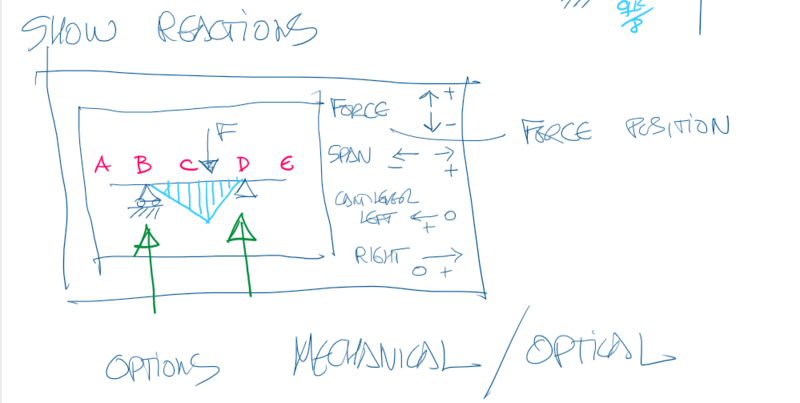 SHOW REACTIONS
qls
8
FORCE + -
F
FORCE POSITION
A B C D E
SPAN - +
CANTILEVER
LEFT + 0
RIGHT 0 +
OPTIONS MECHANICAL / OPTICAL